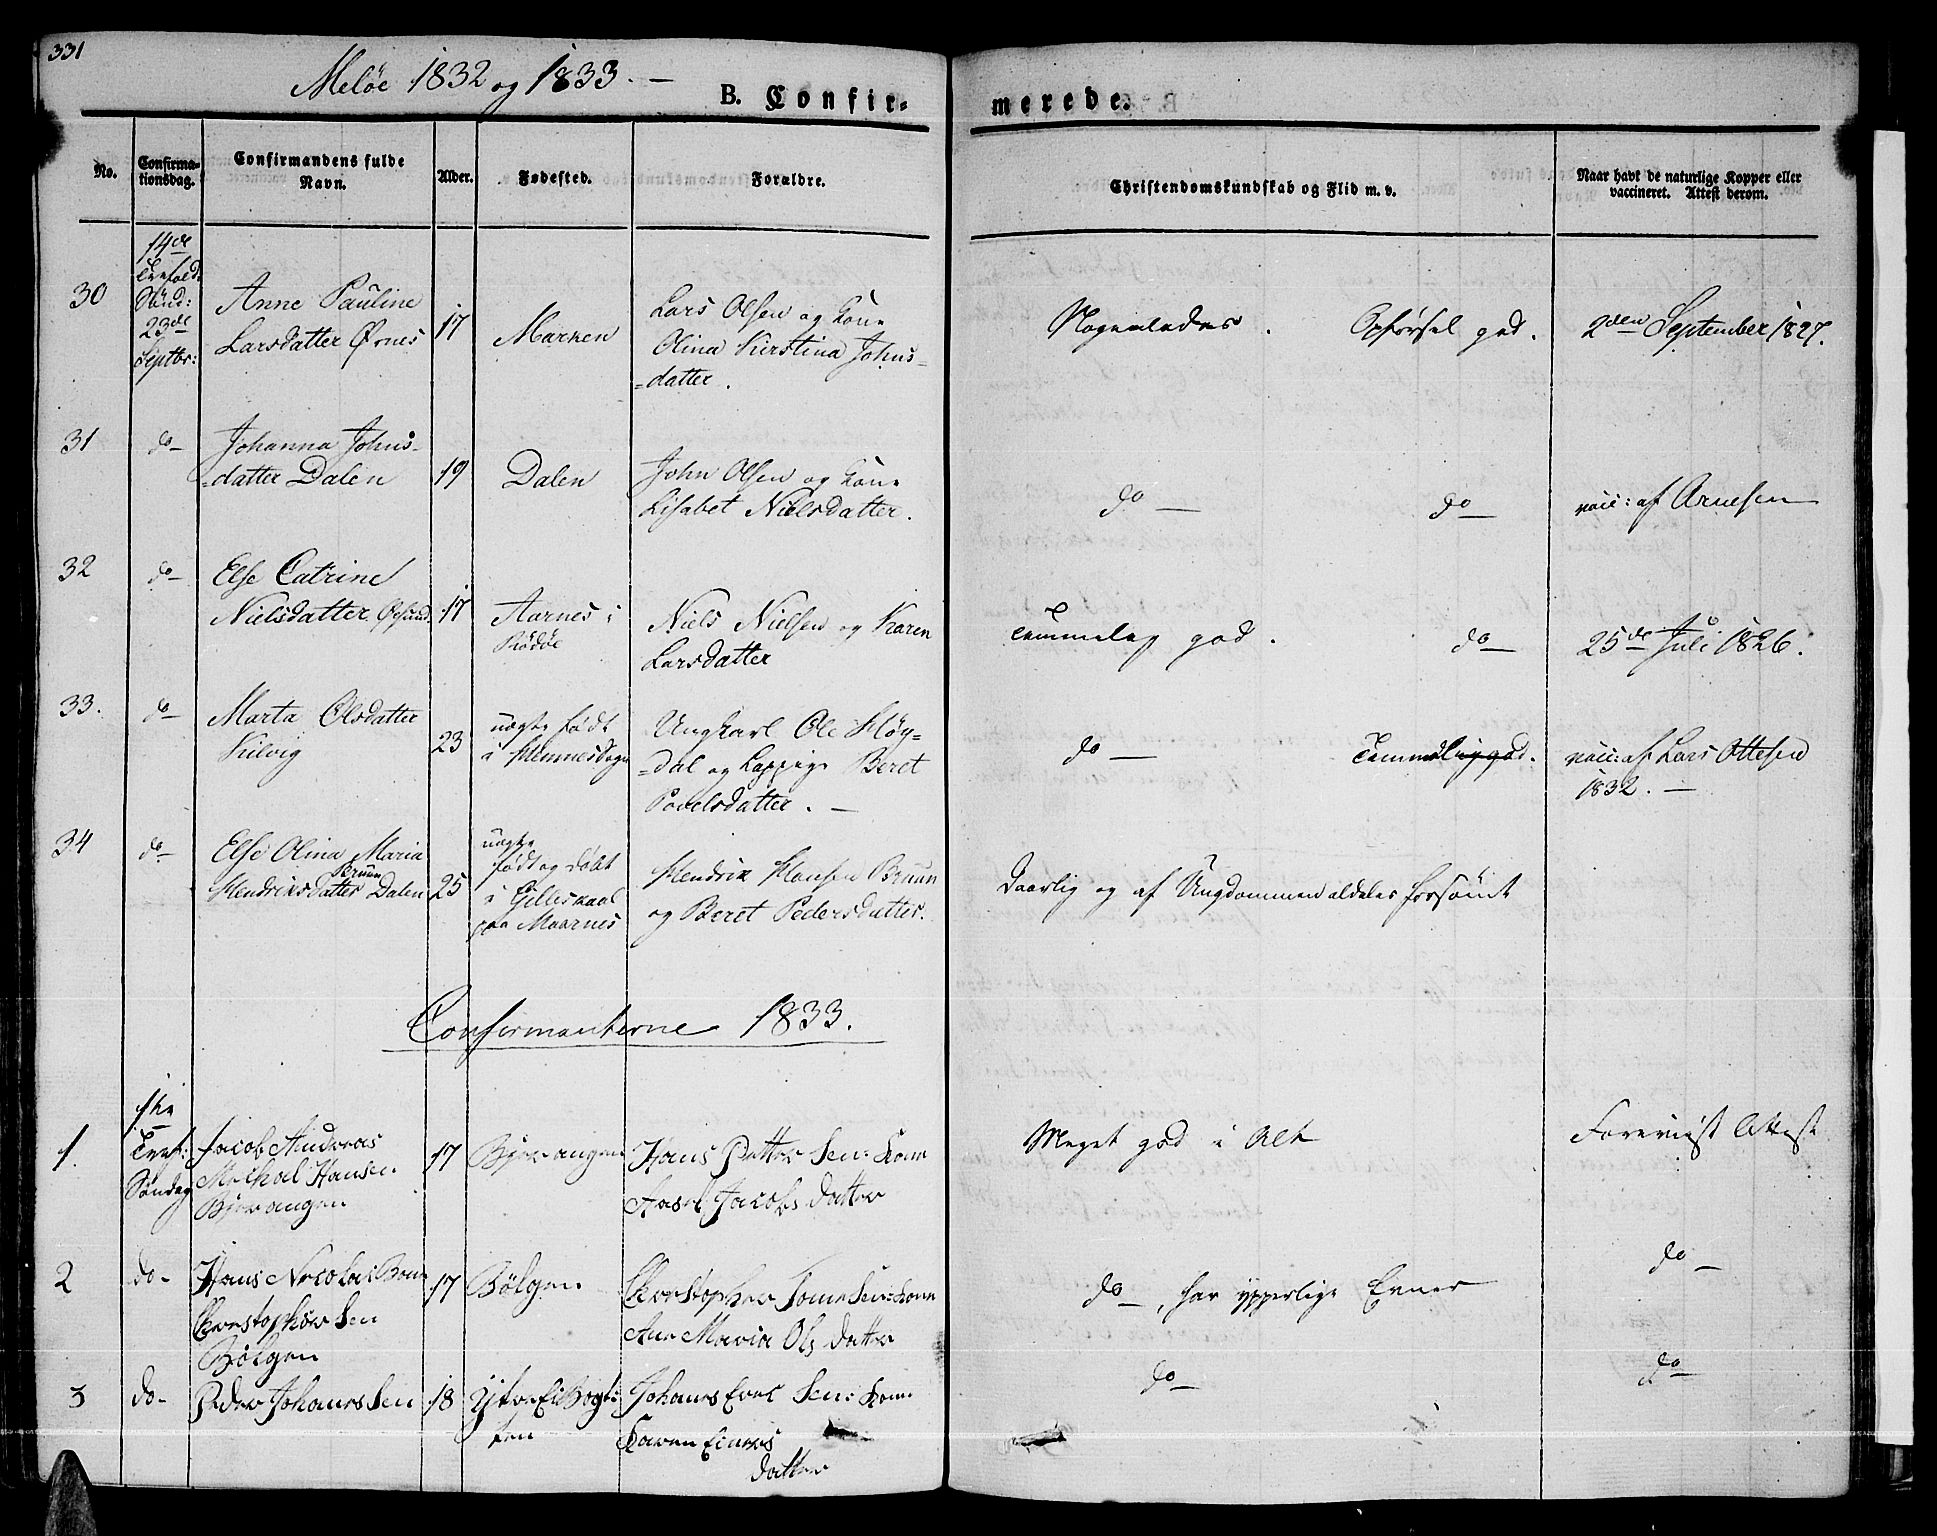 331
Meløe 1832 og 1833. —
B. Confir-
merede.
No.
Confirma-
tionsdag.
Confirmandens fulde
Navn.
Alder.
Fødested.
Forældre.
Christendomskundskab og Flid m. v.
Naar havt de naturlige Kopper eller
vaccineret. Attest derom.
30
14de
Trefold:
Sönd:
23de
Septbr:
Anne Pauline
Larsdatter Ørnes
17
Marken
Lars Olsen og Kone
Olina Kirstina Johns-
-datter.
Nogenledes. Opførsel god.
2den September 1827.
31
do-
Johanna Johns-
-datter Dalen
19
Dalen
John Olsen og Kone
Lisabet Nielsdatter.
do —
do —
vacc: af Arnesen
32
do-
Else Catrine
Nielsdatter Øesund
17
Aarnes i
Rödöe
Niels Nielsen og Karen
Larsdatter
Temmelig god.
do —
25de Juli 1826.
33.
do-
Marta Olsdatter
Kilvig
23
uægte født
i Hemnesdagn
Ungkarl Ole Höy-
-dal og Lappige Beret
Povelsdatter. —
do —
Temmelig god.
vacc: af Lars Ottesen
1832. —
34
do-
Else Olina Maria
Bruun
Hendriksdatter Dalen
25
uægte
født og døbt
i Gilleskaal
paa Maarnes
Hendrik Hansen Bruun
og Beret Pedersdatter.
Daarlig og af Ungdommen aldeles forsömt
Confirmanterne 1833.
1.
1ste
Tref:
Søndag
Jacob Andreas
Mikal Hansen
Bjerangen
17
Bjerangen
Hans Petter Sen: Kone
Assel Jacobs Datter
Meget god i Alt
Foreviist Attest
2
do-
Hans Nicolai
Christopher Sen
Bølgen
17
Bølgen
Christopher Tome Sen: Kone
Ane Maria Ols Datter
do —, har ypperlige Evner
do —
3
do-
Peder Johannes Sen
18
Johannes Sen: Kone
Karen Einers
Datter
do —
do —